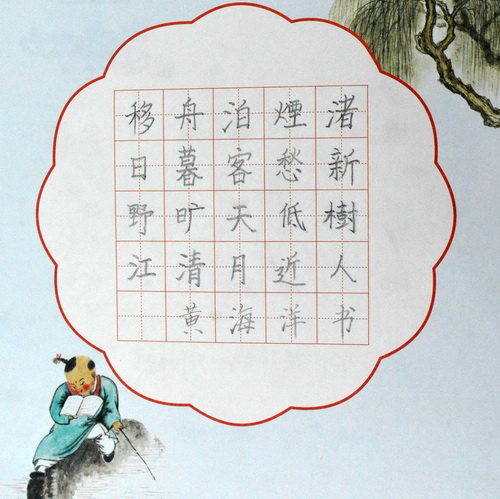 移舟泊煙渚
日暮客愁新
野旷天低樹
江清月近人
黄海洋书